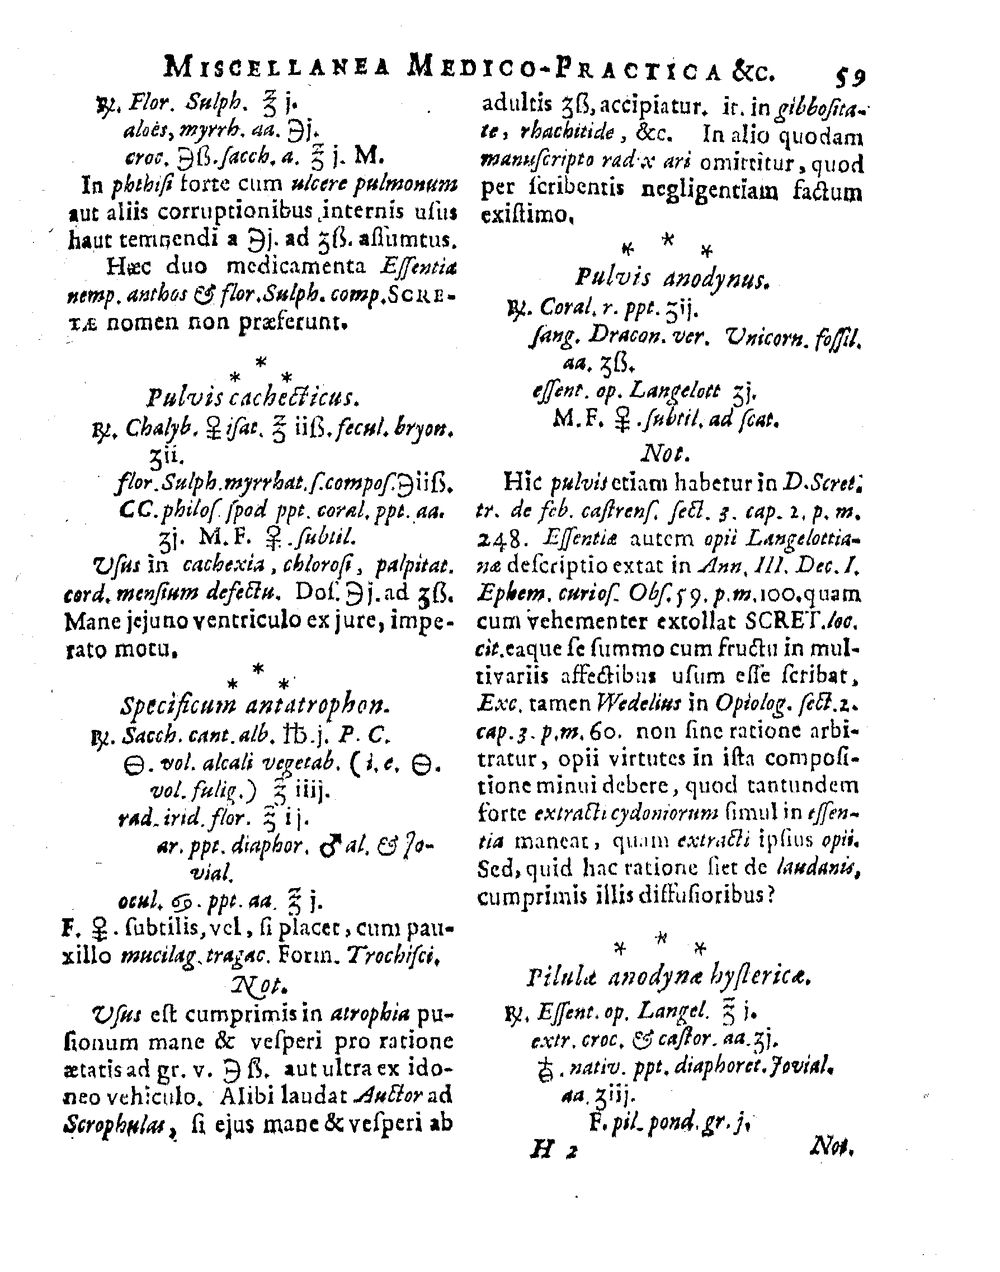 MISCELLANEA MEDICO-PRACTICA &c. 59
℞. Flor. Sulph. ℥ j.
aloës, myrrh. aa. ℈j.
croc. ℈ß. ſacch. a. ℥ j. M.
In phthiſi forte cum ulcere pulmonum
aut aliis corruptionibus internis uſus
haut temnendi a ℈j. ad ʒß. aſſumtus.
Hæc duo medicamenta Eſſentia
nemp. anthos & flor. Sulph. comp. SCRE-
TÆ nomen non præferunt.
* * *
Pulvis cachecticus.
℞. Chalyb. ♀ iſat. ℥ iiß. fecul. bryon.
ʒii.
flor. Sulph. myrrhat. ſ. compoſ. ℈iiß.
CC. philoſ. ſpod ppt. coral. ppt. aa.
ʒj. M. F. ♀. ſubtil.
Uſus in cachexia, chloroſi, palpitat.
cord. menſium defectu. Doſ. ℈j. ad ʒß.
Mane jejuno ventriculo ex jure, impe-
rato motu.
* * *
Specificum antatrophon.
℞. Sacch. cant. alb. ℔.j. P. C.
⊖. vol. alcali vegetab. (i. e. ⊖.
vol. fulig.) ℥ iiij.
rad. irid. flor. ℥ ij.
ar. ppt. diaphor. ♂ al. & Jo-
vial.
ocul. ♋. ppt. aa. ℥ j.
F. ♀. ſubtilis, vel, ſi placet, cum pau-
xillo mucilag. tragac. Form. Trochiſci.
Not.
Uſus eſt cumprimis in atrophia pu-
ſionum mane & veſperi pro ratione
ætatis ad gr. v. ℈ ß. aut ultra ex ido-
neo vehiculo. Alibi laudat Auctor ad
Scrophulas, ſi ejus mane & veſperi ab
adultis ʒß, accipiatur. it. in gibboſita-
te, rhachitide, &c. In alio quodam
manuſcripto rad x ari omittitur, quod
per ſcribentis negligentiam factum
exiſtimo.
* * *
Pulvis anodynus.
℞. Coral. r. ppt. ʒij.
ſang. Dracon. ver. Unicorn. foſſil.
aa. ʒß.
eſſent. op. Langelott ʒj.
M. F. ♀. ſubtil. ad ſcat.
Not.
Hic pulvis etiam habetur in D. Scret.
tr. de feb. caſtrenſ. ſect. 3. cap. 2. p. m.
248. Eſſentiæ autem opii Langelottia-
næ deſcriptio extat in Ann. III. Dec. I.
Ephem. curioſ. Obſ. 59. p. m. 100. quam
cum vehementer extollat SCRET. loc.
cit. eaque ſe ſummo cum fructu in mul-
tivariis affectibus uſum eſſe ſcribat,
Exc. tamen Wedelius in Opiolog. ſect. 2.
cap. 3. p. m. 60. non ſine ratione arbi-
tratur, opii virtutes in iſta compoſi-
tione minui debere, quod tantundem
forte extracti cydoniorum ſimul in eſſen-
tia maneat, quam extracti ipſius opii.
Sed, quid hac ratione fiet de laudanis,
cumprimis illis diffuſioribus?
* * *
Pilulæ anodynæ hyſtericæ.
℞. Eſſent. op. Langel. ℥ j.
extr. croc. & caſtor. aa. ʒj.
♁. nativ. ppt. diaphoret. Jovial.
aa. ʒiij.
F. pil. pond. gr. j.
H 2 Not.